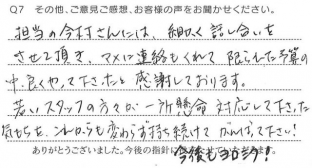 Q7 その他、ご意見ご感想、お客様の声をお聞かせください。
担当の今村さんには、細かく話し合いを
させて頂き、マメに連絡もくれて限られた予算の
中、良くやって下さったと感謝しております。
若いスタッフの方々が一所懸命対応して下さった
気もちを、これからも変わらず持ち続けてがんばって下さい!
ありがとうございました。今後の指針に
今後もヨロシク!